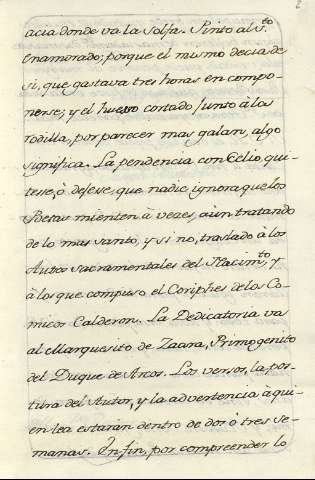 2
acia donde va la solfa. Pinto al S.to
enamorado; porque el mismo decia de
si, que gastava tres horas en compo-
nerse; y el huesso cortado junto à la
rodilla, por parecer mas galan, algo
significa. La pendencia con Celio, qui-
tesse, ò dejese, que nadie ignora que los
Poetas mienten à vezes, aùn tratando
de lo mas santo, y si no, traslado à los
Autos sacramentales del Nacim.to, y
à los que compuso el Coripheo de los Co-
micos Calderon. La Dedicatoria va
al Marquesito de Zaara, Primogenito
del Duque de Arcos. Los versos, la pos-
tura del Autor, y la advertencia à qui-
en lea estaràn dentro de dos ò tres se-
manas. En fin, por compreender lo